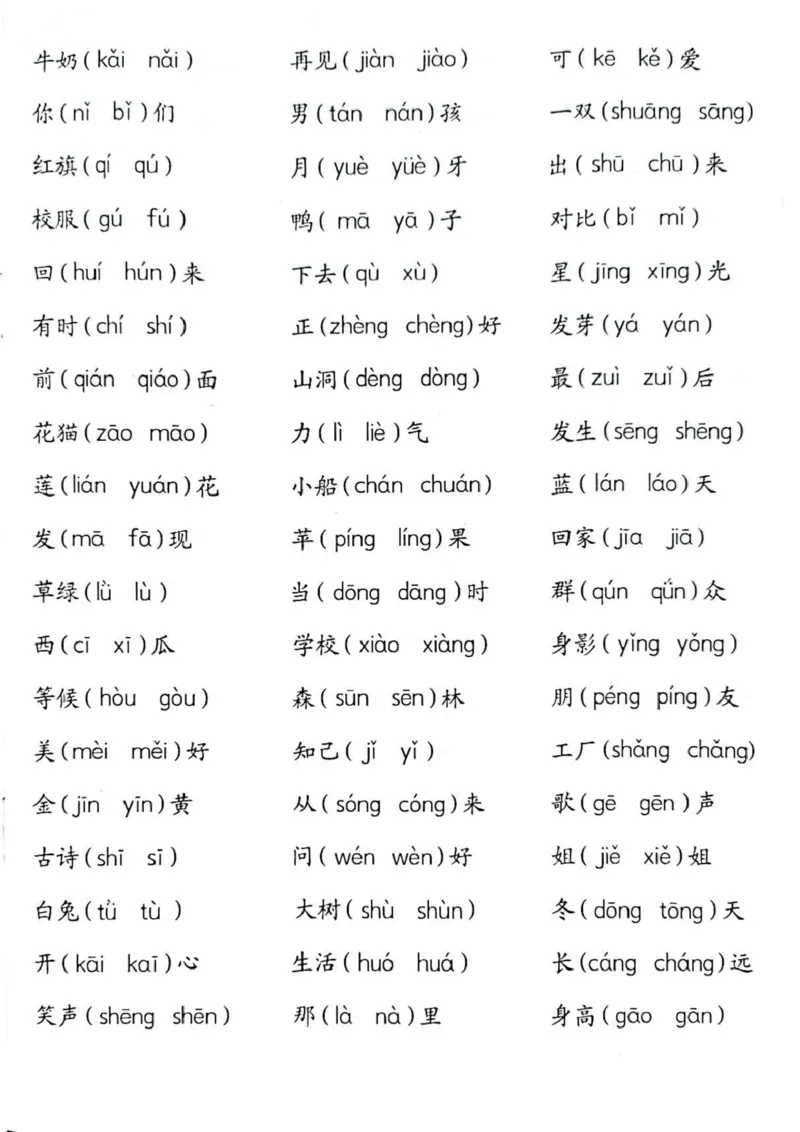 牛奶(kǎi nǎi) 再见(jiàn jiào) 可(kē kě)爱
你(nǐ bǐ)们 男(tán nán)孩 一双(shuāng sāng)
红旗(qí qú) 月(yuè yüè)牙 出(shū chū)来
校服(gú fú) 鸭(mā yā)子 对比(bǐ mǐ)
回(huí hún)来 下去(qù xù) 星(jīng xīng)光
有时(chí shí) 正(zhèng chèng)好 发芽(yá yán)
前(qián qiáo)面 山洞(dèng dòng) 最(zuì zuǐ)后
花猫(zāo māo) 力(lì liè)气 发生(sēng shēng)
莲(lián yuán)花 小船(chán chuán) 蓝(lán láo)天
发(mā fā)现 苹(píng líng)果 回家(jīa jiā)
草绿(lǜ lù) 当(dōng dāng)时 群(qún qǘn)众
西(cī xī)瓜 学校(xiào xiàng) 身影(yǐng yǒng)
等候(hòu gòu) 森(sūn sēn)林 朋(péng píng)友
美(mèi měi)好 知己(jǐ yǐ) 工厂(shǎng chǎng)
金(jīn yīn)黄 从(sóng cóng)来 歌(gē gēn)声
古诗(shī sī) 问(wén wèn)好 姐(jiě xiě)姐
白兔(tǜ tù) 大树(shù shùn) 冬(dōng tōng)天
开(kāi kaī)心 生活(huó huá) 长(cáng cháng)远
笑声(shēng shēn) 那(là nà)里 身高(gāo gān)